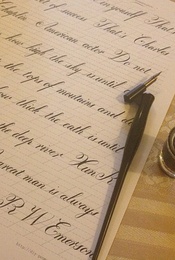 in yourself That's
of paren That's Charles
Chaplin American actor Do not
how high the sky is until
the top of mountains and
how thick the eath is until
the deep river Han
great man is always
R W Emerson